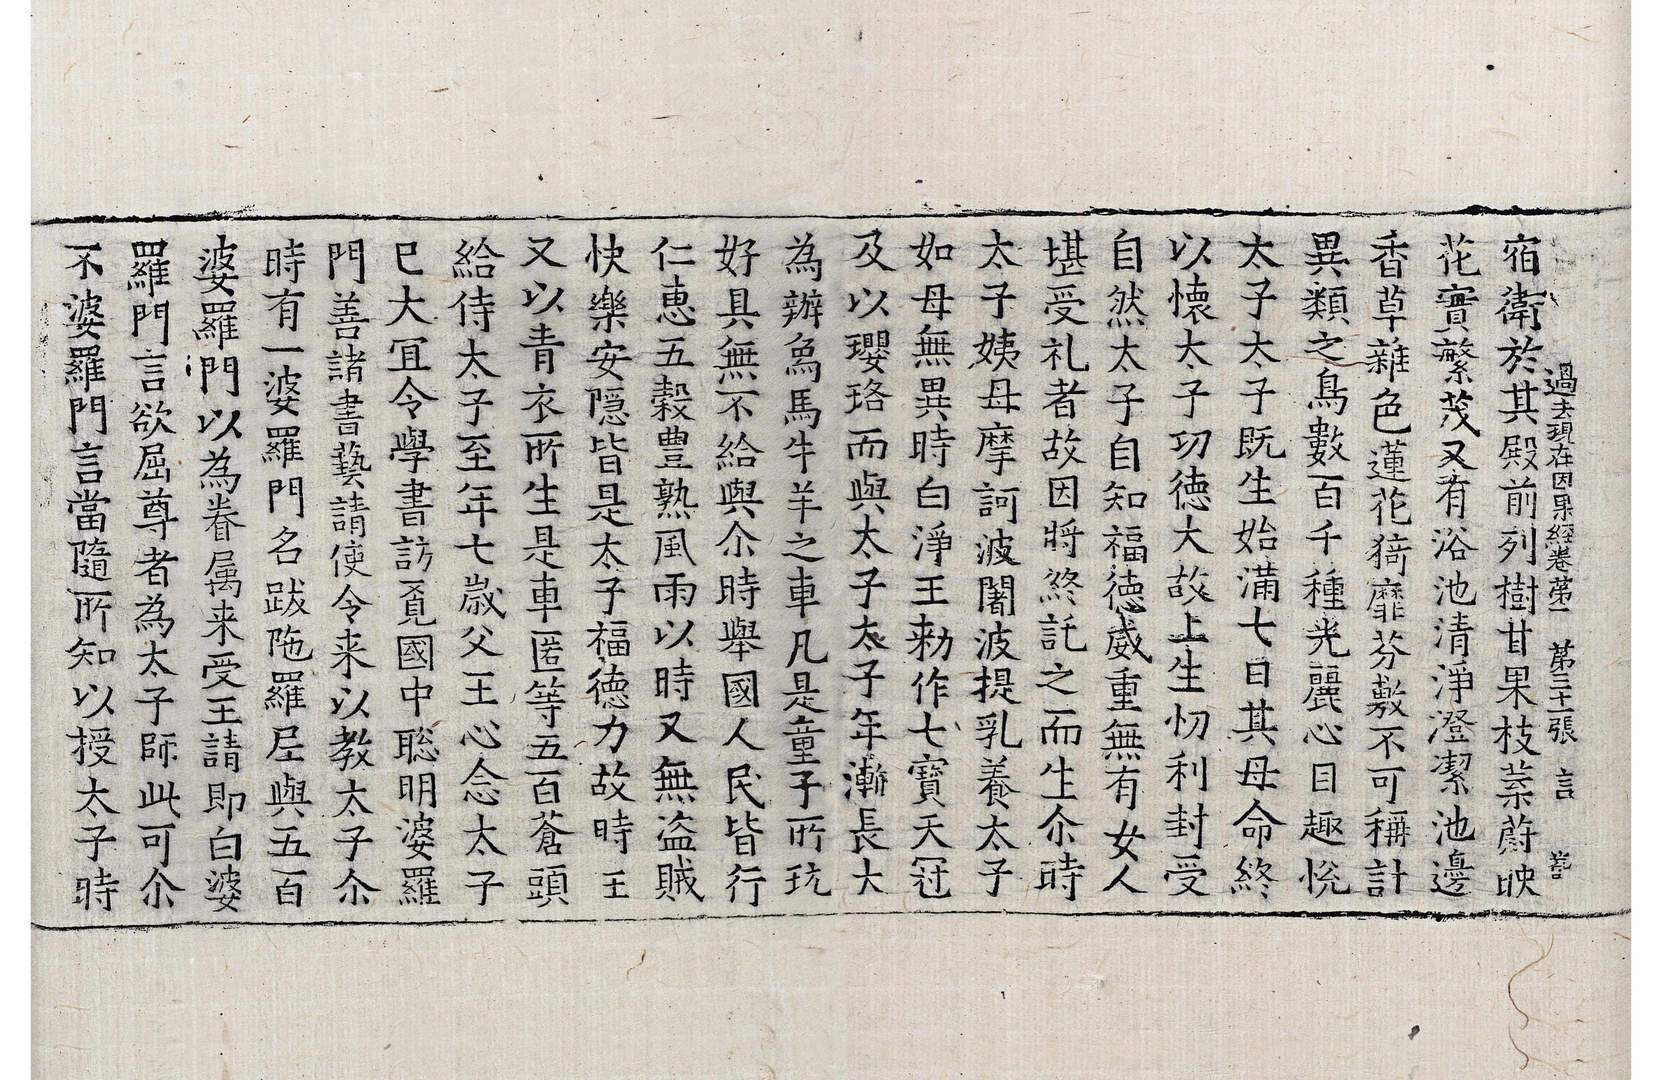 過去現在因果經卷第一　第三十一張　言
宿衛於其殿前列樹甘果枝葉蔚映
花實繁茂又有浴池清淨澄潔池邊
香草雜色蓮花猗靡芬敷不可稱計
異類之鳥數百千種光麗心目趣悅
太子太子既生始滿七日其母命終
以懷太子功德大故上生忉利封受
自然太子自知福德威重無有女人
堪受礼者故因將終託之而生尒時
太子姨母摩訶波闍波提乳養太子
如母無異時白淨王勑作七寶天冠
及以瓔珞而與太子太子年漸長大
為辦象馬牛羊之車凡是童子所玩
好具無不給與尒時舉國人民皆行
仁恵五穀豊熟風雨以時又無盜賊
快樂安隱皆是太子福德力故時王
又以青衣所生是車匿等五百蒼頭
給侍太子至年七歲父王心念太子
已大冝令學書訪覓國中聡明婆羅
門善諸書藝請使令来以教太子尒
時有一婆羅門名跋陁羅尼與五百
婆羅門以為眷属来受王請即白婆
羅門言欲屈尊者為太子師此可尒
不婆羅門言當隨所知以授太子時